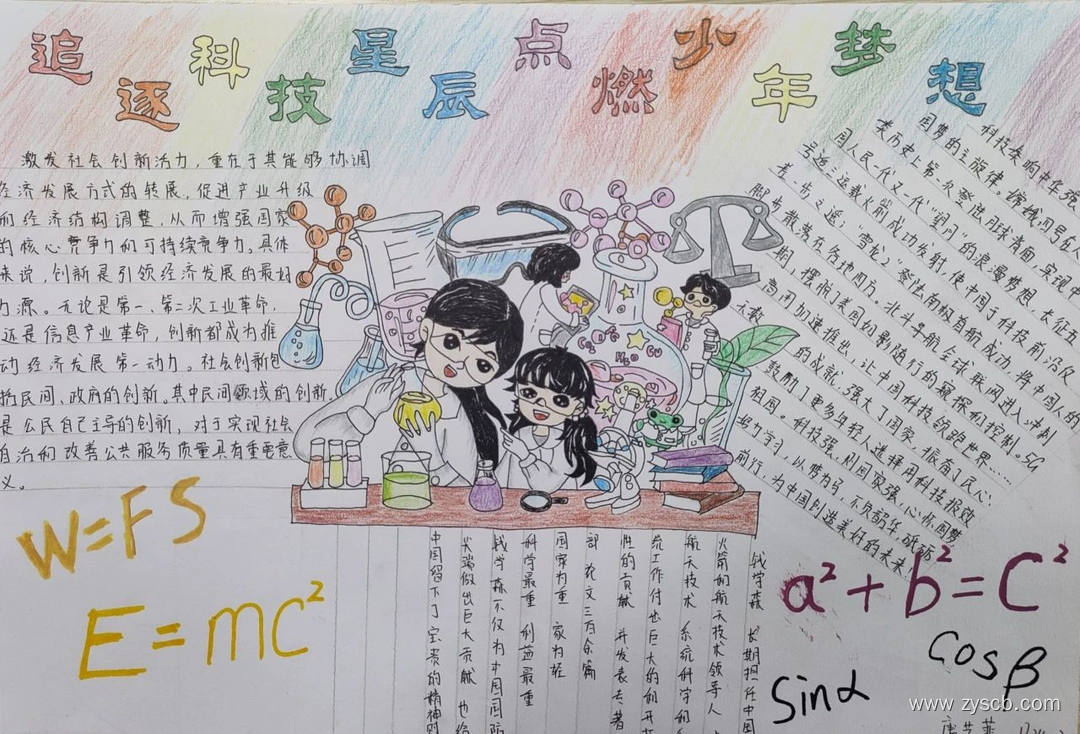 追逐科技星辰点燃少年梦想
激发社会创新活力，重在于其能够协调
经济发展方式的转展，促进产业升级
和经济结构调整，从而增强国家
的核心竞争力和可持续竞争力。具体
来说，创新是引领经济发展的最好
力源。无论是第一、第二次工业革命，
还是信息产业革命，创新都成为推
动经济发展第一动力。社会创新包
括民间、政府的创新。其中民间领域的创新，
是公民自己主导的创新，对于实现社会
自治和改善公共服务质量具有重要意
义。
科技奏响中华强
国梦的主旋律。嫦娥四号在人
类历史上第一次登陆月球背面，实现中
国人民一代又一代"望月"的浪漫梦想，长征五
号遥三运载火箭成功发射，使中国于科技前沿仅
一步之遥；"雪龙2"登陆南极首航成功，将中国人的
脚步散落在各地四方。北斗导航全球联网进入冲刺
期，摆脱了美国如影随行的窥探和控制。5G
商用加速推出，让中国科技领跑世界……
的成就，强大了国家，振奋了民心，
鼓励了更多年轻人选择用科技报效
祖国。科技强，则国家强，心怀国梦
努力学习，以梦为马，不负韶华，砥砺
前行，为中国创造美好的未来
钱学森 长期担任中国
火箭和航天技术领导人
航天技术 系统科学和
统工作付也巨大的和开拓
性的贡献 并发表去著
部 论文三百余篇
国家为重 家为轻
科学最重 利益最重
钱学森不仅为中国国防
尖端做出巨大贡献 也给
中国留下了宝贵的精神财
W=FS
E=mc²
a²+b²=C²
cosβ
Sinα
H₂O
Cu
www.zyscb.com